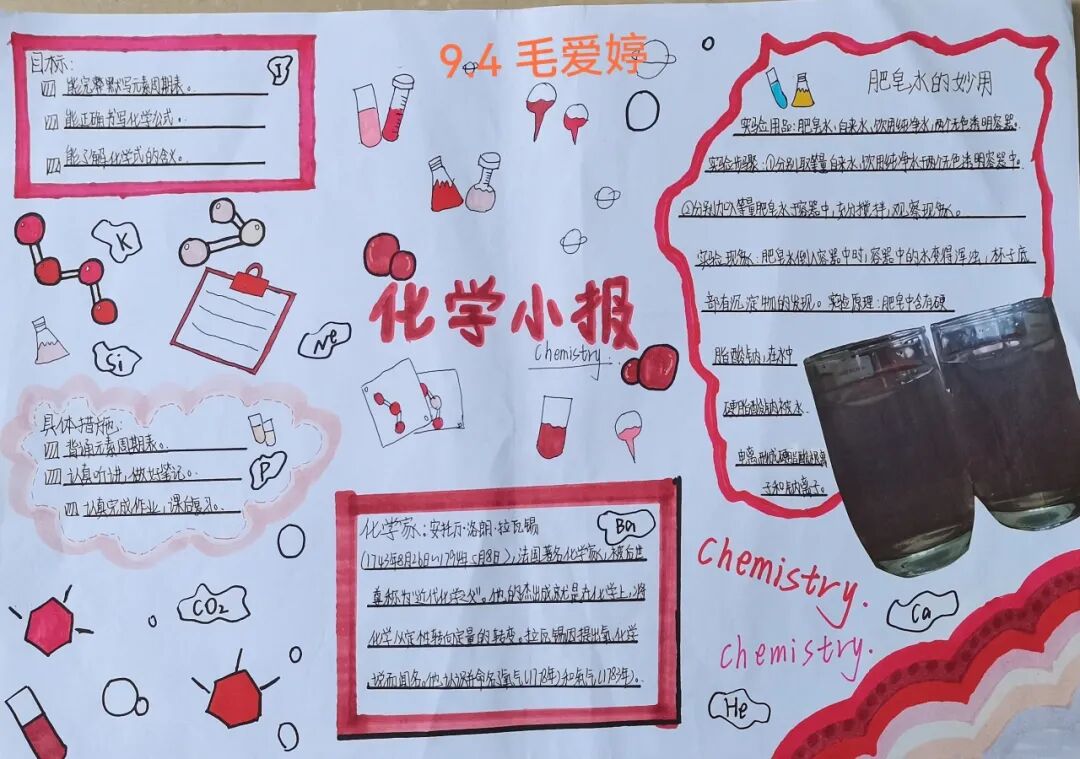 9.4 毛爱婷
目标:
能完整默写元素周期表。
能正确书写化学公式。
能了解化学式的含义。
I
K
Si
Ne
化学小报
Chemistry.
具体措施:
背诵元素周期表。
认真听讲,做好笔记。
认真完成作业,课后复习。
P
CO₂
化学家:安托万·洛朗·拉瓦锡
Ba
(1743年8月26日~1794年5月8日),法国著名化学家,被后世
尊称为"近代化学之父"。他的杰出成就是在化学上,将
化学从定性转向定量的转变。拉瓦锡因提出氧化学
说而闻名。他认识并命名了氧气(1778年)和氢气(1783年)。
肥皂水的妙用
实验用品:肥皂水、自来水、饮用纯净水、两个无色透明容器。
实验步骤:①分别取等量自来水、饮用纯净水于两个无色透明容器中。
②分别加入等量肥皂水于容器中,充分搅拌,观察现象。
实验现象:肥皂水倒入容器中时,容器中的水变得浑浊,杯子底
部有沉淀物的发现。实验原理:肥皂中含有硬
脂酸钠,在水中
硬脂酸钠被水
电离
子和钠离子。
chemistry.
chemistry.
Ca
He